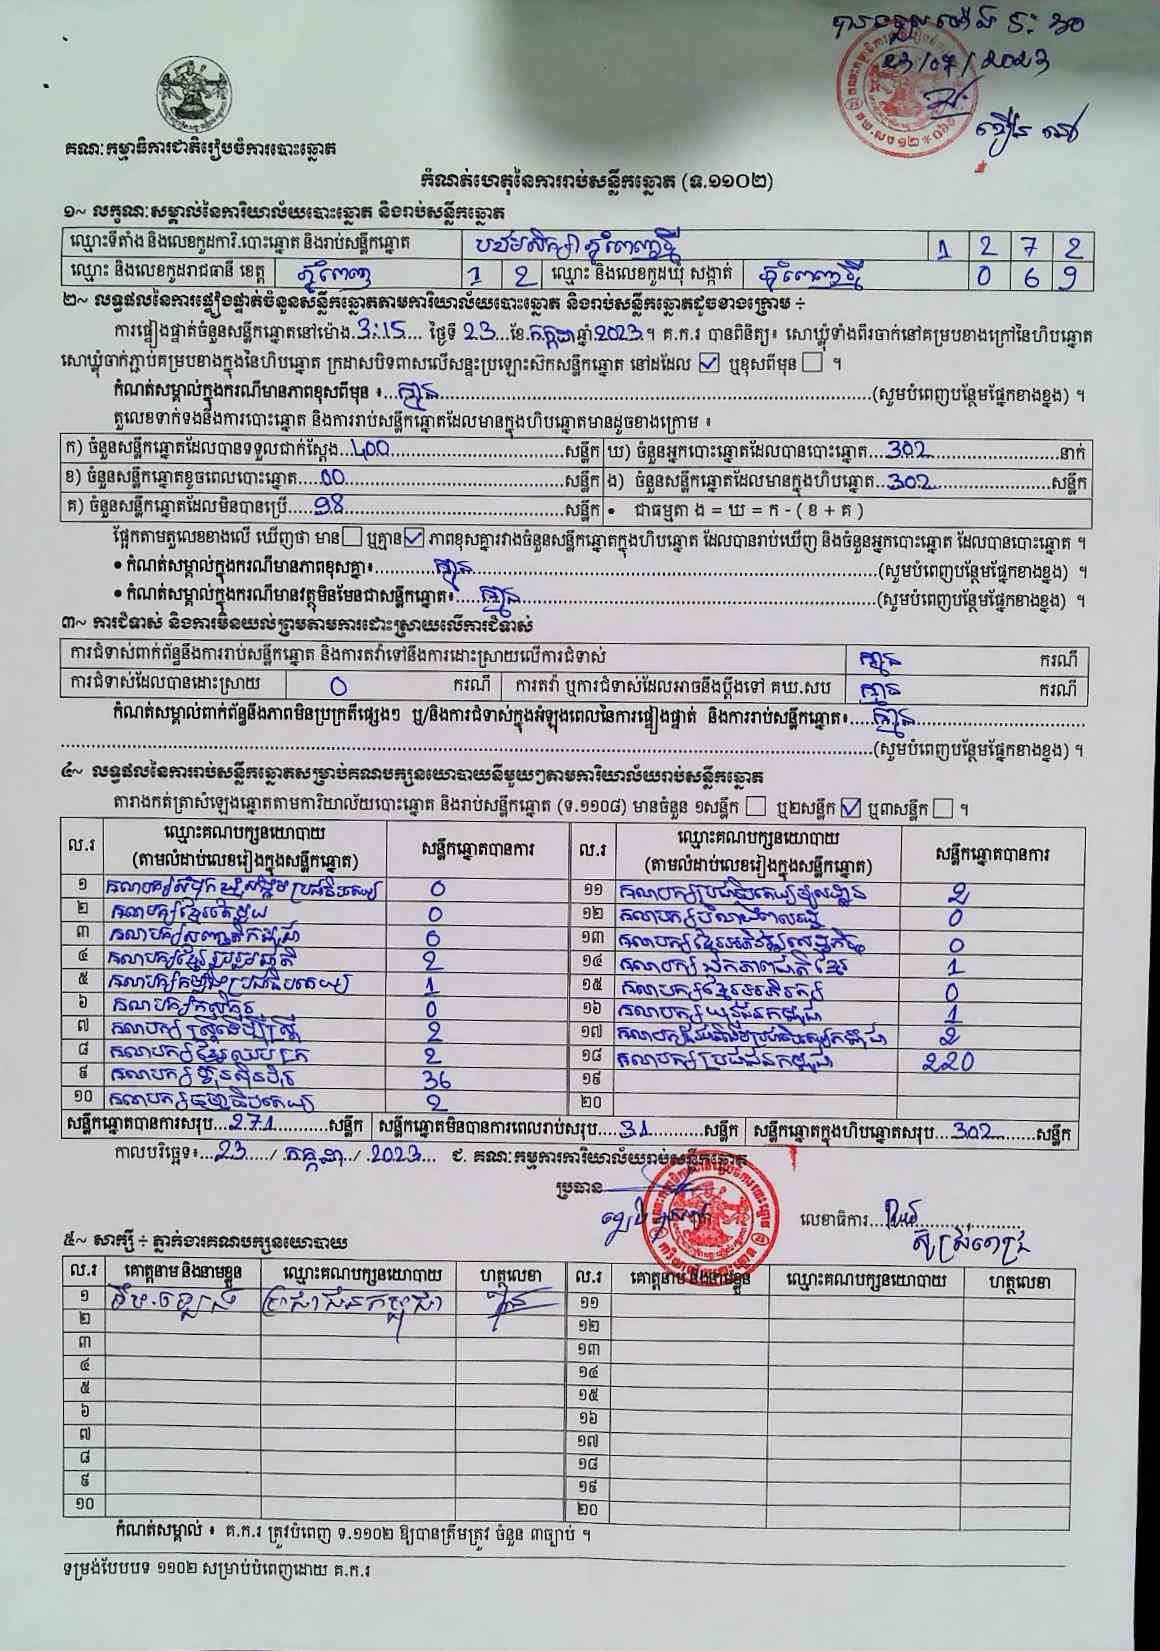 23/07/2023
គណៈកម្មាធិការជាតិរៀបចំការបោះឆ្នោត
កំណត់ហេតុនៃការរាប់សន្លឹកឆ្នោត (ទ.១១០២)
១~ លក្ខណៈសម្គាល់នៃការិយាល័យបោះឆ្នោត និងរាប់សន្លឹកឆ្នោត
ឈ្មោះទីតាំង និងលេខកូដការិ.បោះឆ្នោត និងរាប់សន្លឹកឆ្នោត បឋមសិក្សា ភ្នំពេញថ្មី 1 2 7 2
ឈ្មោះ និងលេខកូដរាជធានី ខេត្ត ភ្នំពេញ 1 2 ឈ្មោះ និងលេខកូដឃុំ សង្កាត់ ភ្នំពេញថ្មី 0 6 9
២~ លទ្ធផលនៃការផ្ទៀងផ្ទាត់ចំនួនសន្លឹកឆ្នោតតាមការិយាល័យបោះឆ្នោត និងរាប់សន្លឹកឆ្នោតដូចខាងក្រោម ÷
ការផ្ទៀងផ្ទាត់ចំនួនសន្លឹកឆ្នោតនៅម៉ោង 3:15 ថ្ងៃទី 23 ខែ កក្កដា ឆ្នាំ 2023 ។ គ.ក.រ បានពិនិត្យ៖ សោឃ្លុំទាំងពីរចាក់នៅគម្របខាងក្រៅនៃហិបឆ្នោត
សោឃ្លុំចាក់ភ្ជាប់គម្របខាងក្នុងនៃហិបឆ្នោត ក្រដាសបិទពាសលើសន្ទះប្រឡោះស៊កសន្លឹកឆ្នោត នៅដដែល ☑ ឬខុសពីមុន ☐ ។
កំណត់សម្គាល់ក្នុងករណីមានភាពខុសពីមុន ៖ គ្មាន (សូមបំពេញបន្ថែមផ្នែកខាងខ្នង) ។
តួលេខទាក់ទងនឹងការបោះឆ្នោត និងការរាប់សន្លឹកឆ្នោតដែលមានក្នុងហិបឆ្នោតមានដូចខាងក្រោម ៖
ក) ចំនួនសន្លឹកឆ្នោតដែលបានទទួលជាក់ស្តែង 400 សន្លឹក ឃ) ចំនួនអ្នកបោះឆ្នោតដែលបានបោះឆ្នោត 302 នាក់
ខ) ចំនួនសន្លឹកឆ្នោតខូចពេលបោះឆ្នោត 00 សន្លឹក ង) ចំនួនសន្លឹកឆ្នោតដែលមានក្នុងហិបឆ្នោត 302 សន្លឹក
គ) ចំនួនសន្លឹកឆ្នោតដែលមិនបានប្រើ 98 សន្លឹក • ជាធម្មតា ង = ឃ = ក - ( ខ + គ )
ផ្អែកតាមតួលេខខាងលើ ឃើញថា មាន ☐ ឬគ្មាន ☑ ភាពខុសគ្នារវាងចំនួនសន្លឹកឆ្នោតក្នុងហិបឆ្នោត ដែលបានរាប់ឃើញ និងចំនួនអ្នកបោះឆ្នោត ដែលបានបោះឆ្នោត ។
• កំណត់សម្គាល់ក្នុងករណីមានភាពខុសគ្នា៖ គ្មាន (សូមបំពេញបន្ថែមផ្នែកខាងខ្នង) ។
• កំណត់សម្គាល់ក្នុងករណីមានវត្ថុមិនមែនជាសន្លឹកឆ្នោត៖ គ្មាន (សូមបំពេញបន្ថែមផ្នែកខាងខ្នង) ។
៣~ ការជំទាស់ និងការមិនយល់ព្រមតាមការដោះស្រាយលើការជំទាស់
ការជំទាស់ពាក់ព័ន្ធនឹងការរាប់សន្លឹកឆ្នោត និងការតវ៉ាទៅនឹងការដោះស្រាយលើការជំទាស់ គ្មាន ករណី
ការជំទាស់ដែលបានដោះស្រាយ 0 ករណី ការតវ៉ា ឬការជំទាស់ដែលអាចនឹងប្តឹងទៅ គឃ.សប គ្មាន ករណី
កំណត់សម្គាល់ពាក់ព័ន្ធនឹងភាពមិនប្រក្រតីផ្សេងៗ ឬ/និងការជំទាស់ក្នុងអំឡុងពេលនៃការផ្ទៀងផ្ទាត់ និងការរាប់សន្លឹកឆ្នោត៖ គ្មាន
(សូមបំពេញបន្ថែមផ្នែកខាងខ្នង) ។
៤~ លទ្ធផលនៃការរាប់សន្លឹកឆ្នោតសម្រាប់គណបក្សនយោបាយនីមួយៗតាមការិយាល័យរាប់សន្លឹកឆ្នោត
តារាងកត់ត្រាសំឡេងឆ្នោតតាមការិយាល័យបោះឆ្នោត និងរាប់សន្លឹកឆ្នោត (ទ.១១០៨) មានចំនួន ១សន្លឹក ☐ ឬ២សន្លឹក ☑ ឬ៣សន្លឹក ☐ ។
ល.រ ឈ្មោះគណបក្សនយោបាយ (តាមលំដាប់លេខរៀងក្នុងសន្លឹកឆ្នោត) សន្លឹកឆ្នោតបានការ ល.រ ឈ្មោះគណបក្សនយោបាយ (តាមលំដាប់លេខរៀងក្នុងសន្លឹកឆ្នោត) សន្លឹកឆ្នោតបានការ
១ គណបក្សសំបុកឃ្មុំសង្គមប្រជាធិបតេយ្យ 0 ១១ គណបក្សប្រជាធិបតេយ្យមូលដ្ឋាន 2
២ គណបក្សខ្មែរតែមួយ 0 ១២ 0
៣ គណបក្សសញ្ជាតិកម្ពុជា 6 ១៣ គណបក្សខ្មែរអភិវឌ្ឍន៍សេដ្ឋកិច្ច 0
៤ គណបក្សខ្មែររួបរួមជាតិ 2 ១៤ គណបក្សឯកភាពជាតិខ្មែរ 1
៥ គណបក្សកម្លាំងប្រជាធិបតេយ្យ 1 ១៥ គណបក្សខ្មែរអភិរក្ស 0
៦ គណបក្សកសិករ 0 ១៦ គណបក្សយុវជនកម្ពុជា 1
៧ គណបក្សស្ត្រីដើម្បីស្ត្រី 2 ១៧ 2
៨ គណបក្សខ្មែរឈប់ក្រ 2 ១៨ គណបក្សប្រជាជនកម្ពុជា 220
៩ គណបក្សហ្វ៊ុនស៊ិនប៉ិច 36 ១៩
១០ គណបក្សធម្មាធិបតេយ្យ 2 ២០
សន្លឹកឆ្នោតបានការសរុប 271 សន្លឹក សន្លឹកឆ្នោតមិនបានការពេលរាប់សរុប 31 សន្លឹក សន្លឹកឆ្នោតក្នុងហិបឆ្នោតសរុប 302 សន្លឹក
កាលបរិច្ឆេទ៖ 23 / កក្កដា / 2023 ជ. គណៈកម្មការការិយាល័យរាប់សន្លឹកឆ្នោត
ប្រធាន
លេខាធិការ
៥~ សាក្សី ÷ ភ្នាក់ងារគណបក្សនយោបាយ
ល.រ គោត្តនាម និងនាមខ្លួន ឈ្មោះគណបក្សនយោបាយ ហត្ថលេខា ល.រ គោត្តនាម និងនាមខ្លួន ឈ្មោះគណបក្សនយោបាយ ហត្ថលេខា
១ ប្រជាជនកម្ពុជា ១១
២ ១២
៣ ១៣
៤ ១៤
៥ ១៥
៦ ១៦
៧ ១៧
៨ ១៨
៩ ១៩
១០ ២០
កំណត់សម្គាល់ ៖ គ.ក.រ ត្រូវបំពេញ ទ.១១០២ ឱ្យបានត្រឹមត្រូវ ចំនួន ៣ច្បាប់ ។
ទម្រង់បែបបទ ១១០២ សម្រាប់បំពេញដោយ គ.ក.រ